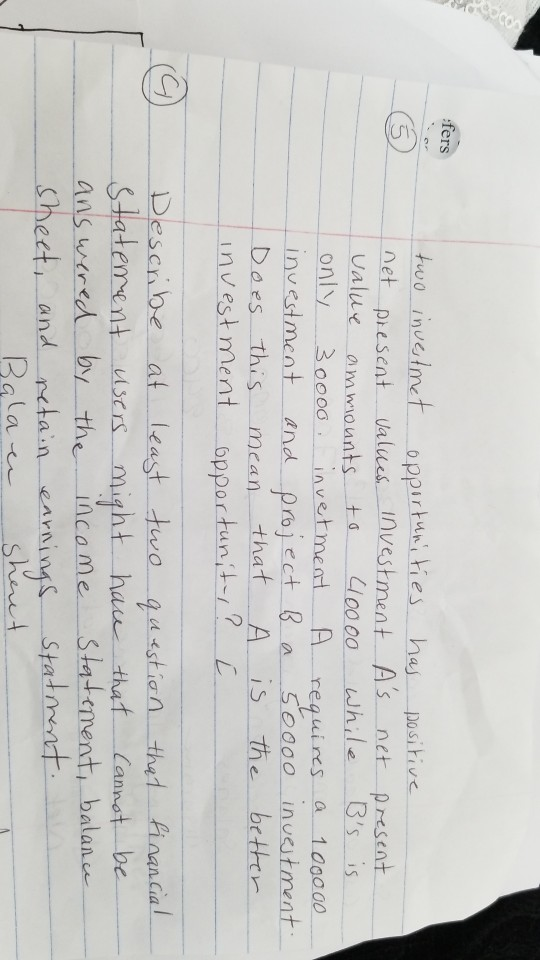 fers
two investmet opportunities has positive
(5) net present values. Investment A's net present
value ammounts to 40000 while B's is
only 30000. invetment A requires a 100000
investment and project B a 50000 investment.
Does this mean that A is the better
investment opportunity? [
(4) Describe at least two question that financial
statement users might have that cannot be
answered by the income statement, balance
sheet, and retain earnings statment.
Balance sheet